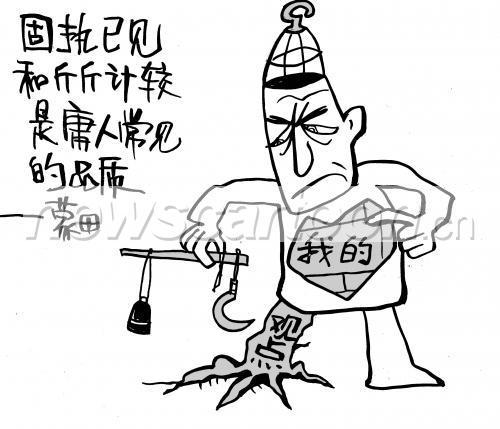 固执已见
和斤斤计较
是庸人常见
的品质
——蒙田
我的
观点
newscartoon.cn